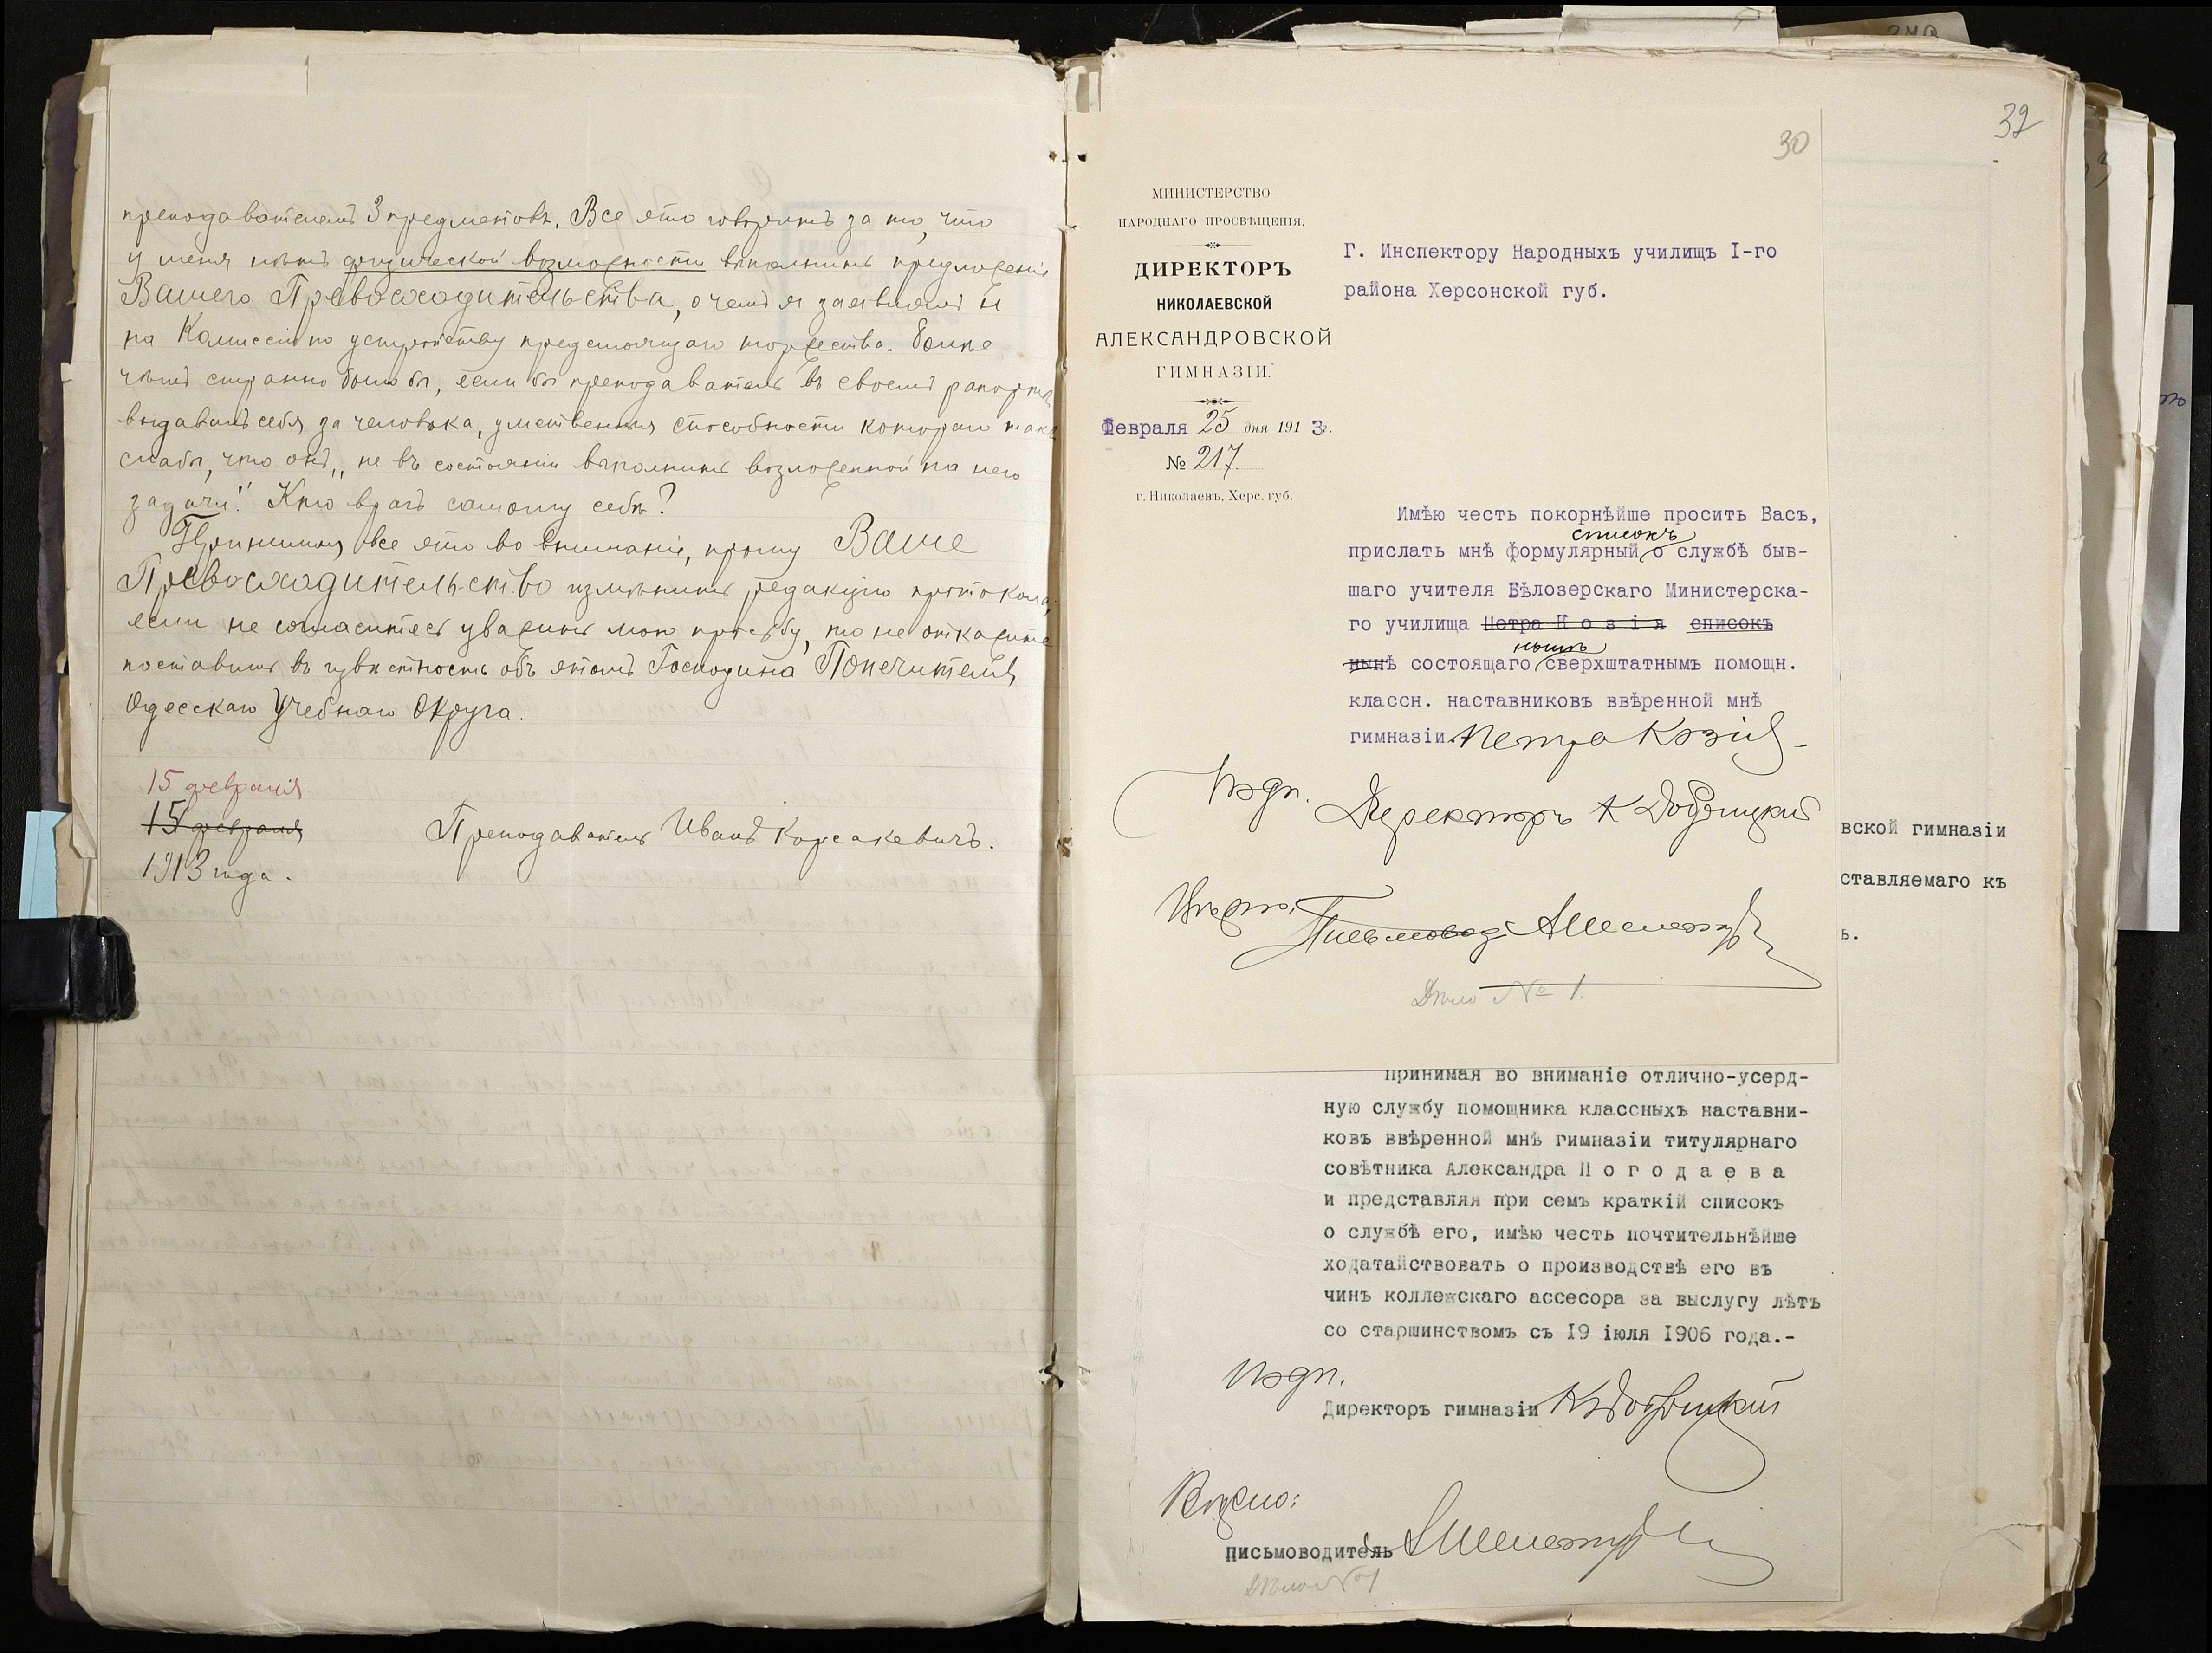 преподавателемъ 3 предметовъ. Все это говоритъ за то, что
у меня нѣтъ физической возможности выполнить предложеніе
Вашего Превосходительства, о чемъ я заявлялъ и
на Комиссіи по устройству предстоящаго торжества. Болѣе
чѣмъ странно было бы, если бы преподаватель въ своемъ рапортѣ
выдавалъ себя за человѣка, умственныя способности котораго такъ
слабы, что онъ „не въ состояніи выполнить возложенной на него
задачи". Кто врагъ самому себѣ?
Принимая все это во вниманіе, прошу Ваше
Превосходительство измѣнить редакцію протокола,
если не согласитесь уважить мою просьбу, то не откажите
поставить въ извѣстность объ этомъ Господина Попечителя
Одесскаго Учебнаго Округа.
15 февраля
15 февраля
1913 года.
Преподаватель Иванъ Корсакевичъ.
32
30
МИНИСТЕРСТВО
НАРОДНАГО ПРОСВѢЩЕНІЯ.
ДИРЕКТОРЪ
НИКОЛАЕВСКОЙ
АЛЕКСАНДРОВСКОЙ
ГИМНАЗІИ.
Февраля 25 дня 1913 г.
№ 217.
г. Николаевъ, Херс. губ.
Г. Инспектору Народныхъ училищъ I-го
района Херсонской губ.
Имѣю честь покорнѣйше просить Васъ,
списокъ
прислать мнѣ формулярный о службѣ быв-
шаго учителя Бѣлозерскаго Министерска-
го училища Петра К о з і я списокъ
нынѣ
нынѣ состоящаго сверхштатнымъ помощн.
классн. наставниковъ ввѣренной мнѣ
гимназіи Петра Козія.
Подп. Директоръ К
Вѣрно: Письмовод. А
Дѣло № 1.
вской гимназіи
ставляемаго къ
ь.
принимая во вниманіе отлично-усерд-
ную службу помощника классныхъ наставни-
ковъ ввѣренной мнѣ гимназіи титулярнаго
совѣтника Александра П о г о д а е в а
и представляя при семъ краткій списокъ
о службѣ его, имѣю честь почтительнѣйше
ходатайствовать о производствѣ его въ
чинъ коллежскаго ассесора за выслугу лѣтъ
со старшинствомъ съ 19 іюля 1906 года.-
Подп.
Директоръ гимназіи К
Вѣрно:
письмоводитель А
Дѣло № 1